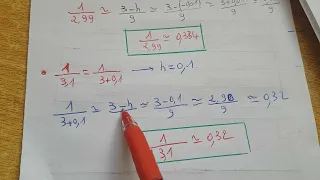 1/2,99 ≃ 3-h/9 ≃ 3-(-0,01)/9
1/2,99 ≃ 0,334
• 1/3,1 = 1/3+0,1 → h=0,1
1/3+0,1 ≃ 3-h/9 ≃ 3-0,1/9 ≃ 2,9/9 ≃ 0,32
1/3,1 ≃ 0,32